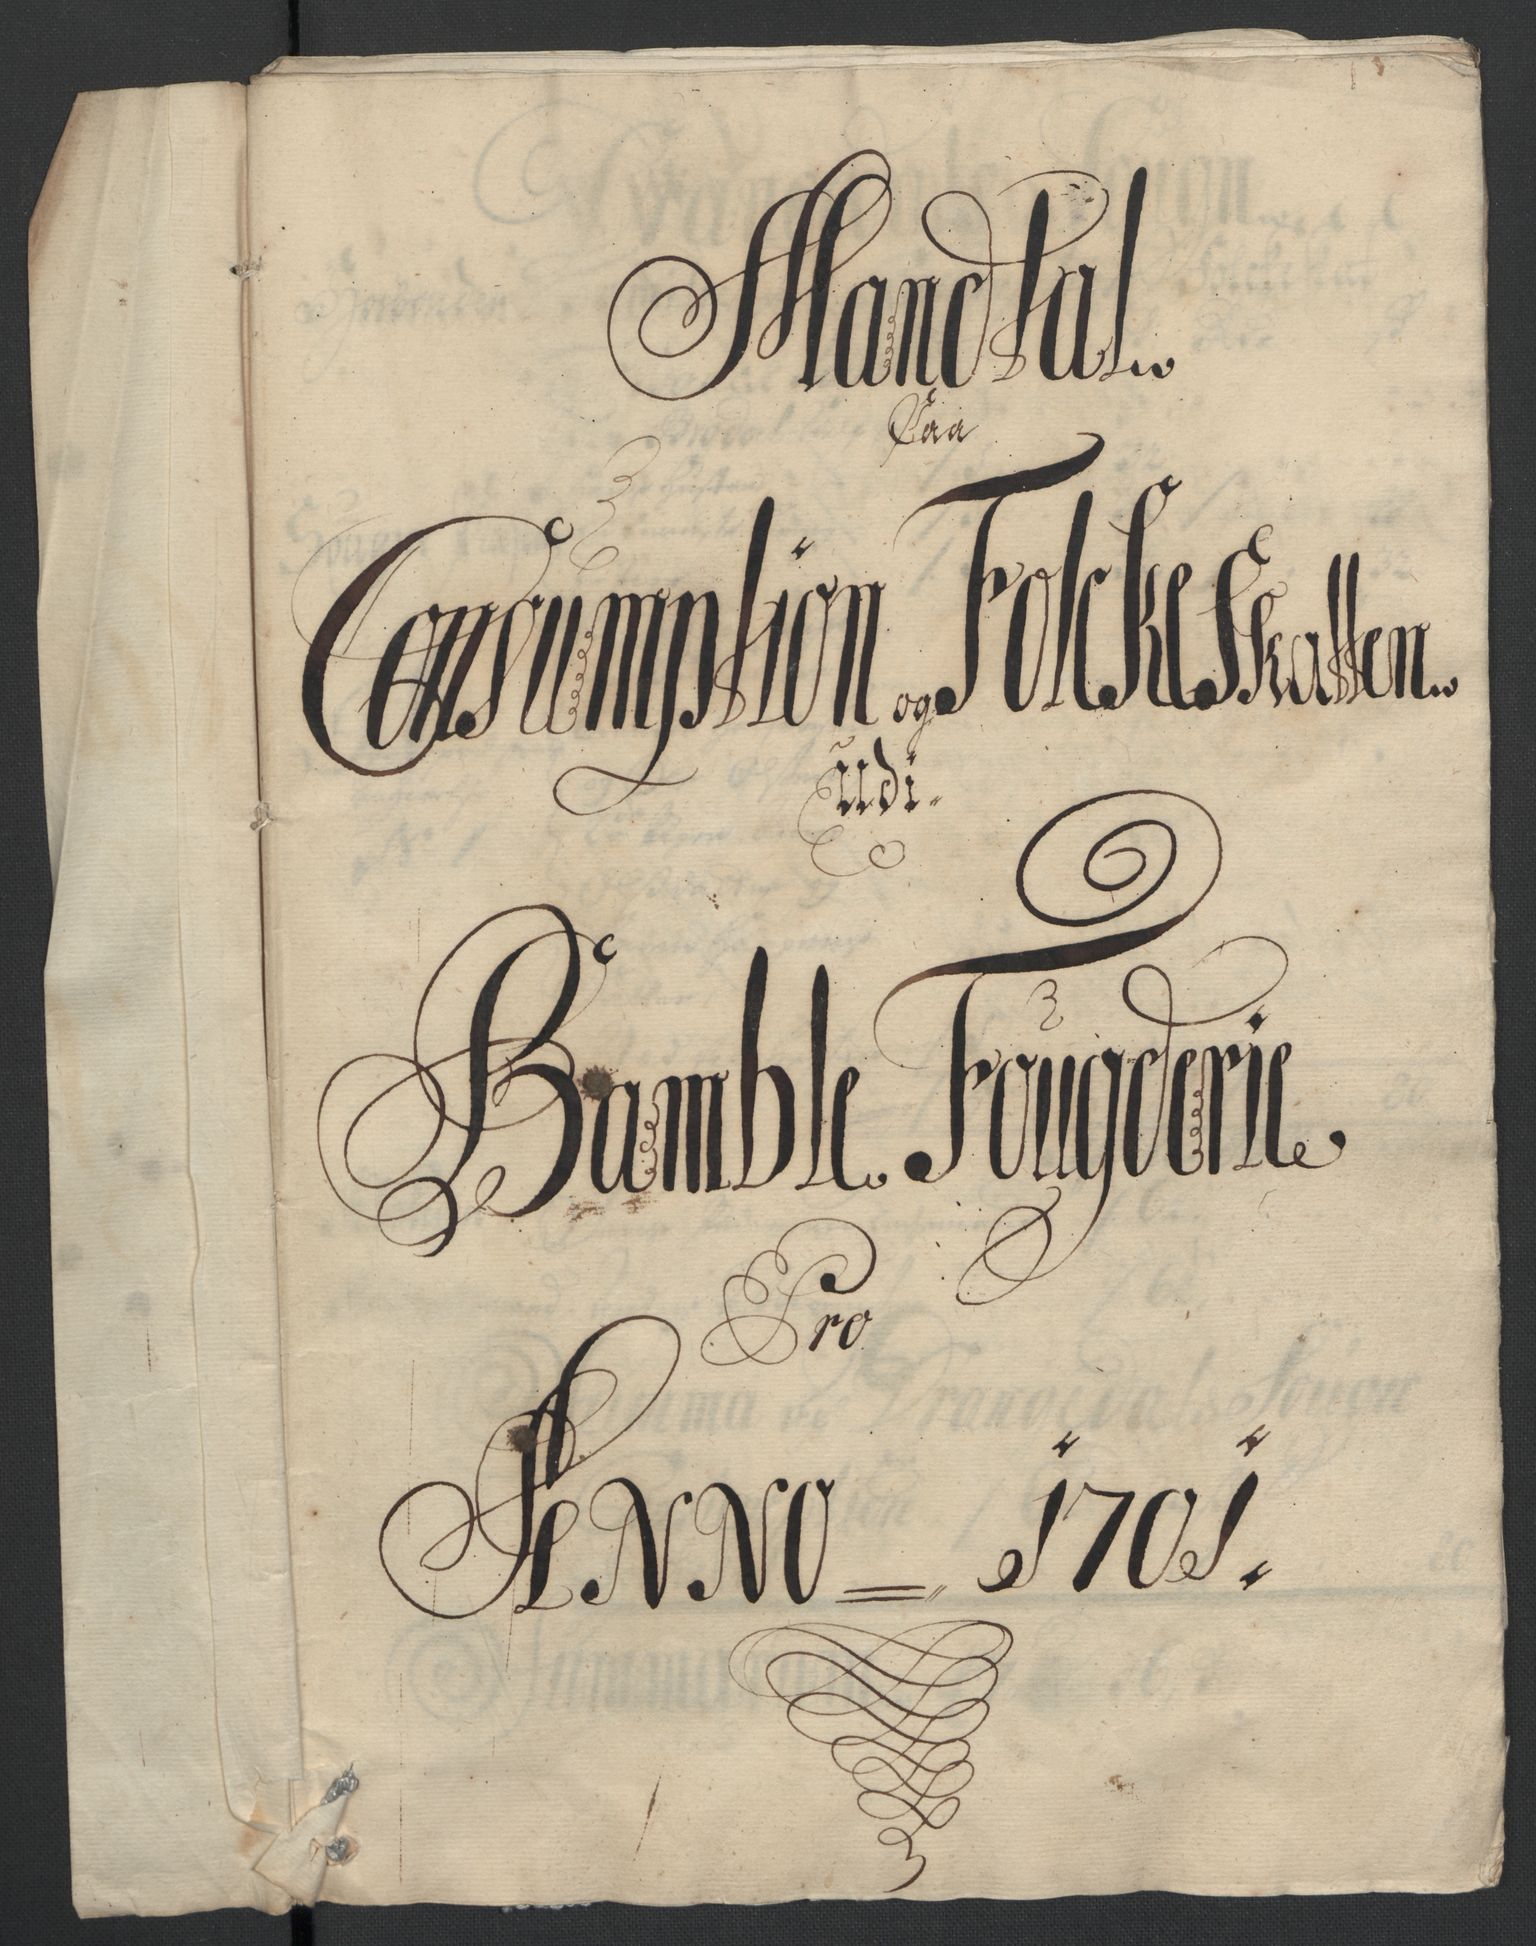 Mandtal
Paa
Consumption og Folcke Skatten
udi
Bamble Fougderie
Pro
ANNO 1701.